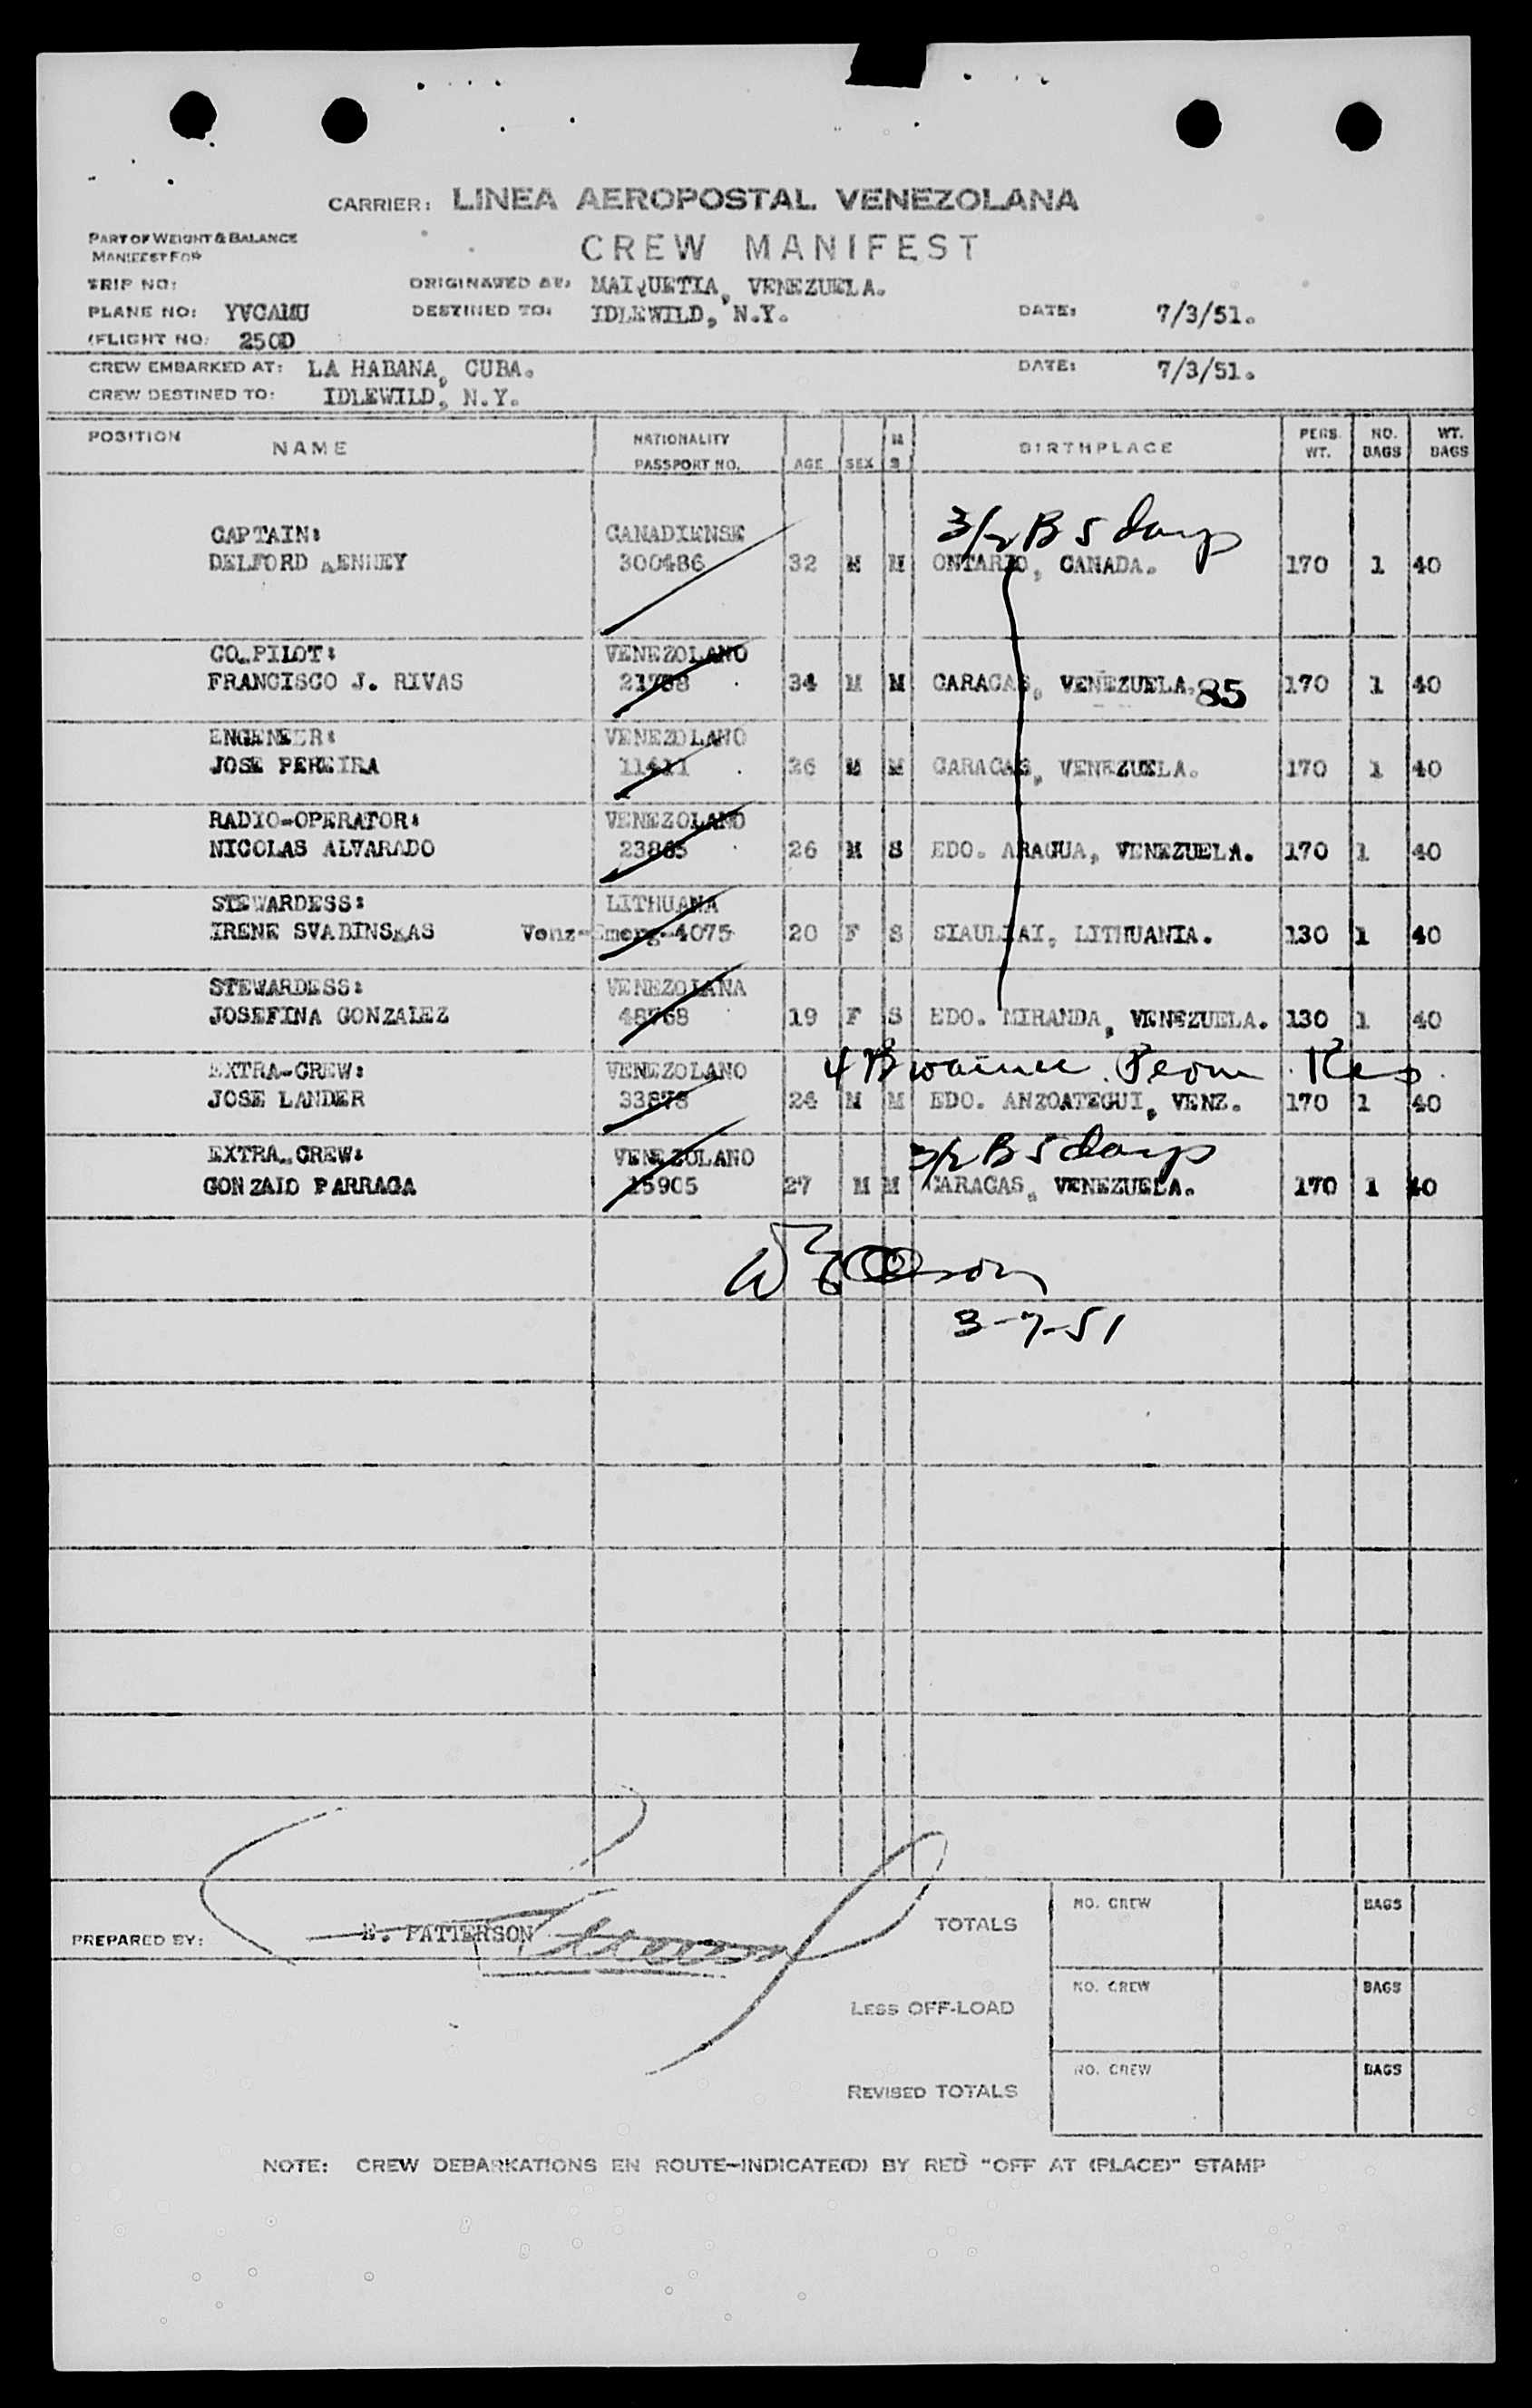 CARRIER: LINEA AEROPOSTAL VENEZOLANA
PART OF WEIGHT & BALANCE
MANIFEST FOR
CREW MANIFEST
TRIP NO:
ORIGINATED AT: MAIQUETIA, VENEZUELA.
PLANE NO: YVCAMU DESTINED TO: IDLEWILD, N.Y. DATE: 7/3/51.
FLIGHT NO: 250D
CREW EMBARKED AT: LA HABANA, CUBA. DATE: 7/3/51.
CREW DESTINED TO: IDLEWILD, N.Y.
POSITION NAME NATIONALITY PASSPORT NO. AGE SEX M S BIRTHPLACE PERS. WT. NO. BAGS WT. BAGS
3/2 B 5 days
CAPTAIN: CANADIENSE
DELFORD 300486 32 M M ONTARIO, CANADA. 170 1 40
CO.PILOT: VENEZOLANO
FRANCISCO J. RIVAS 34 M M CARACAS, VENEZUELA. 85 170 1 40
ENGENEER: VENEZOLANO
JOSE PEREIRA 11411 26 M M CARACAS, VENEZUELA. 170 1 40
RADIO-OPERATOR: VENEZOLANO
NICOLAS ALVARADO 23865 26 M S EDO. ARAGUA, VENEZUELA. 170 1 40
STEWARDESS: LITHUANA
IRENE SVADINSKAS Venz-Emerg-4075 20 F S SIAULIAI, LITHUANIA. 130 1 40
STEWARDESS: VENEZOLANA
JOSEFINA GONZALEZ 48768 19 F S EDO. MIRANDA, VENEZUELA. 130 1 40
EXTRA-CREW: VENEZOLANO 4 B
JOSE LANDER 33878 26 M M EDO. ANZOATEGUI, VENZ. 170 1 40
EXTRA. CREW: VENEZOLANO 3/2 B 5 days
GONZALO PARRAGA 15905 27 M M CARACAS, VENEZUELA. 170 1 40
3-7-51
PREPARED BY: E. PATTERSON
TOTALS NO. CREW BAGS
LESS OFF-LOAD NO. CREW BAGS
REVISED TOTALS NO. CREW BAGS
NOTE: CREW DEBARKATIONS EN ROUTE-INDICATE(D) BY RED "OFF AT (PLACE)" STAMP